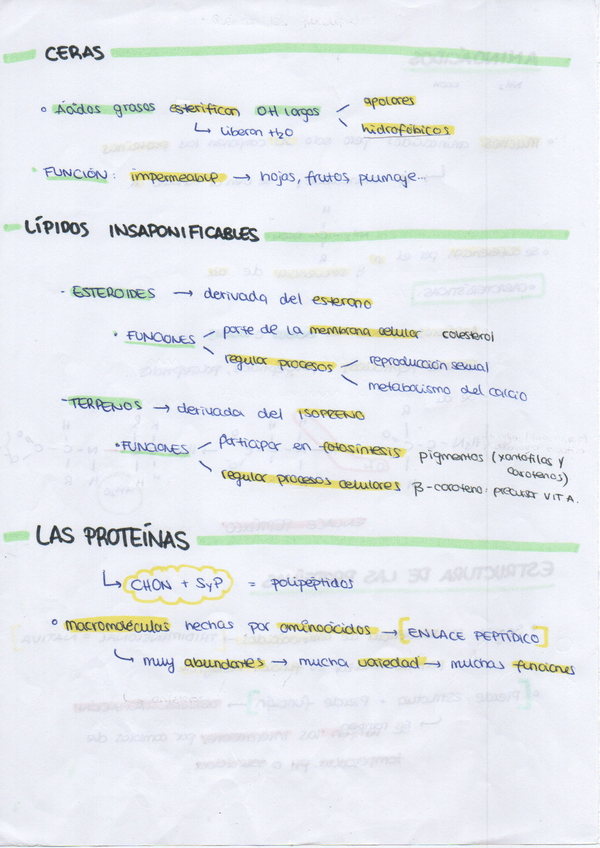 CERAS
◦ Ácidos grasos esterifican OH largos
apolares
hidrofóbicos
↳ Liberan H₂O
· FUNCIÓN: impermeabilizar → hojas, frutos, plumaje...
LÍPIDOS INSAPONIFICABLES
· ESTEROIDES → derivada del esterano
· FUNCIONES
parte de la membrana celular colesterol
regular procesos
reproducción sexual
metabolismo del calcio
· TERPENOS → derivada del ISOPRENO
· FUNCIONES
Participar en fotosíntesis pigmentos (xantofilas y carotenos)
regular procesos celulares β-caroteno: precursor VIT A.
LAS PROTEÍNAS
↳ CHON + S y P = polipéptidos
◦ macromoléculas hechas por aminoácidos → [ENLACE PEPTÍDICO]
↳ muy abundantes → mucha variedad → muchas funciones